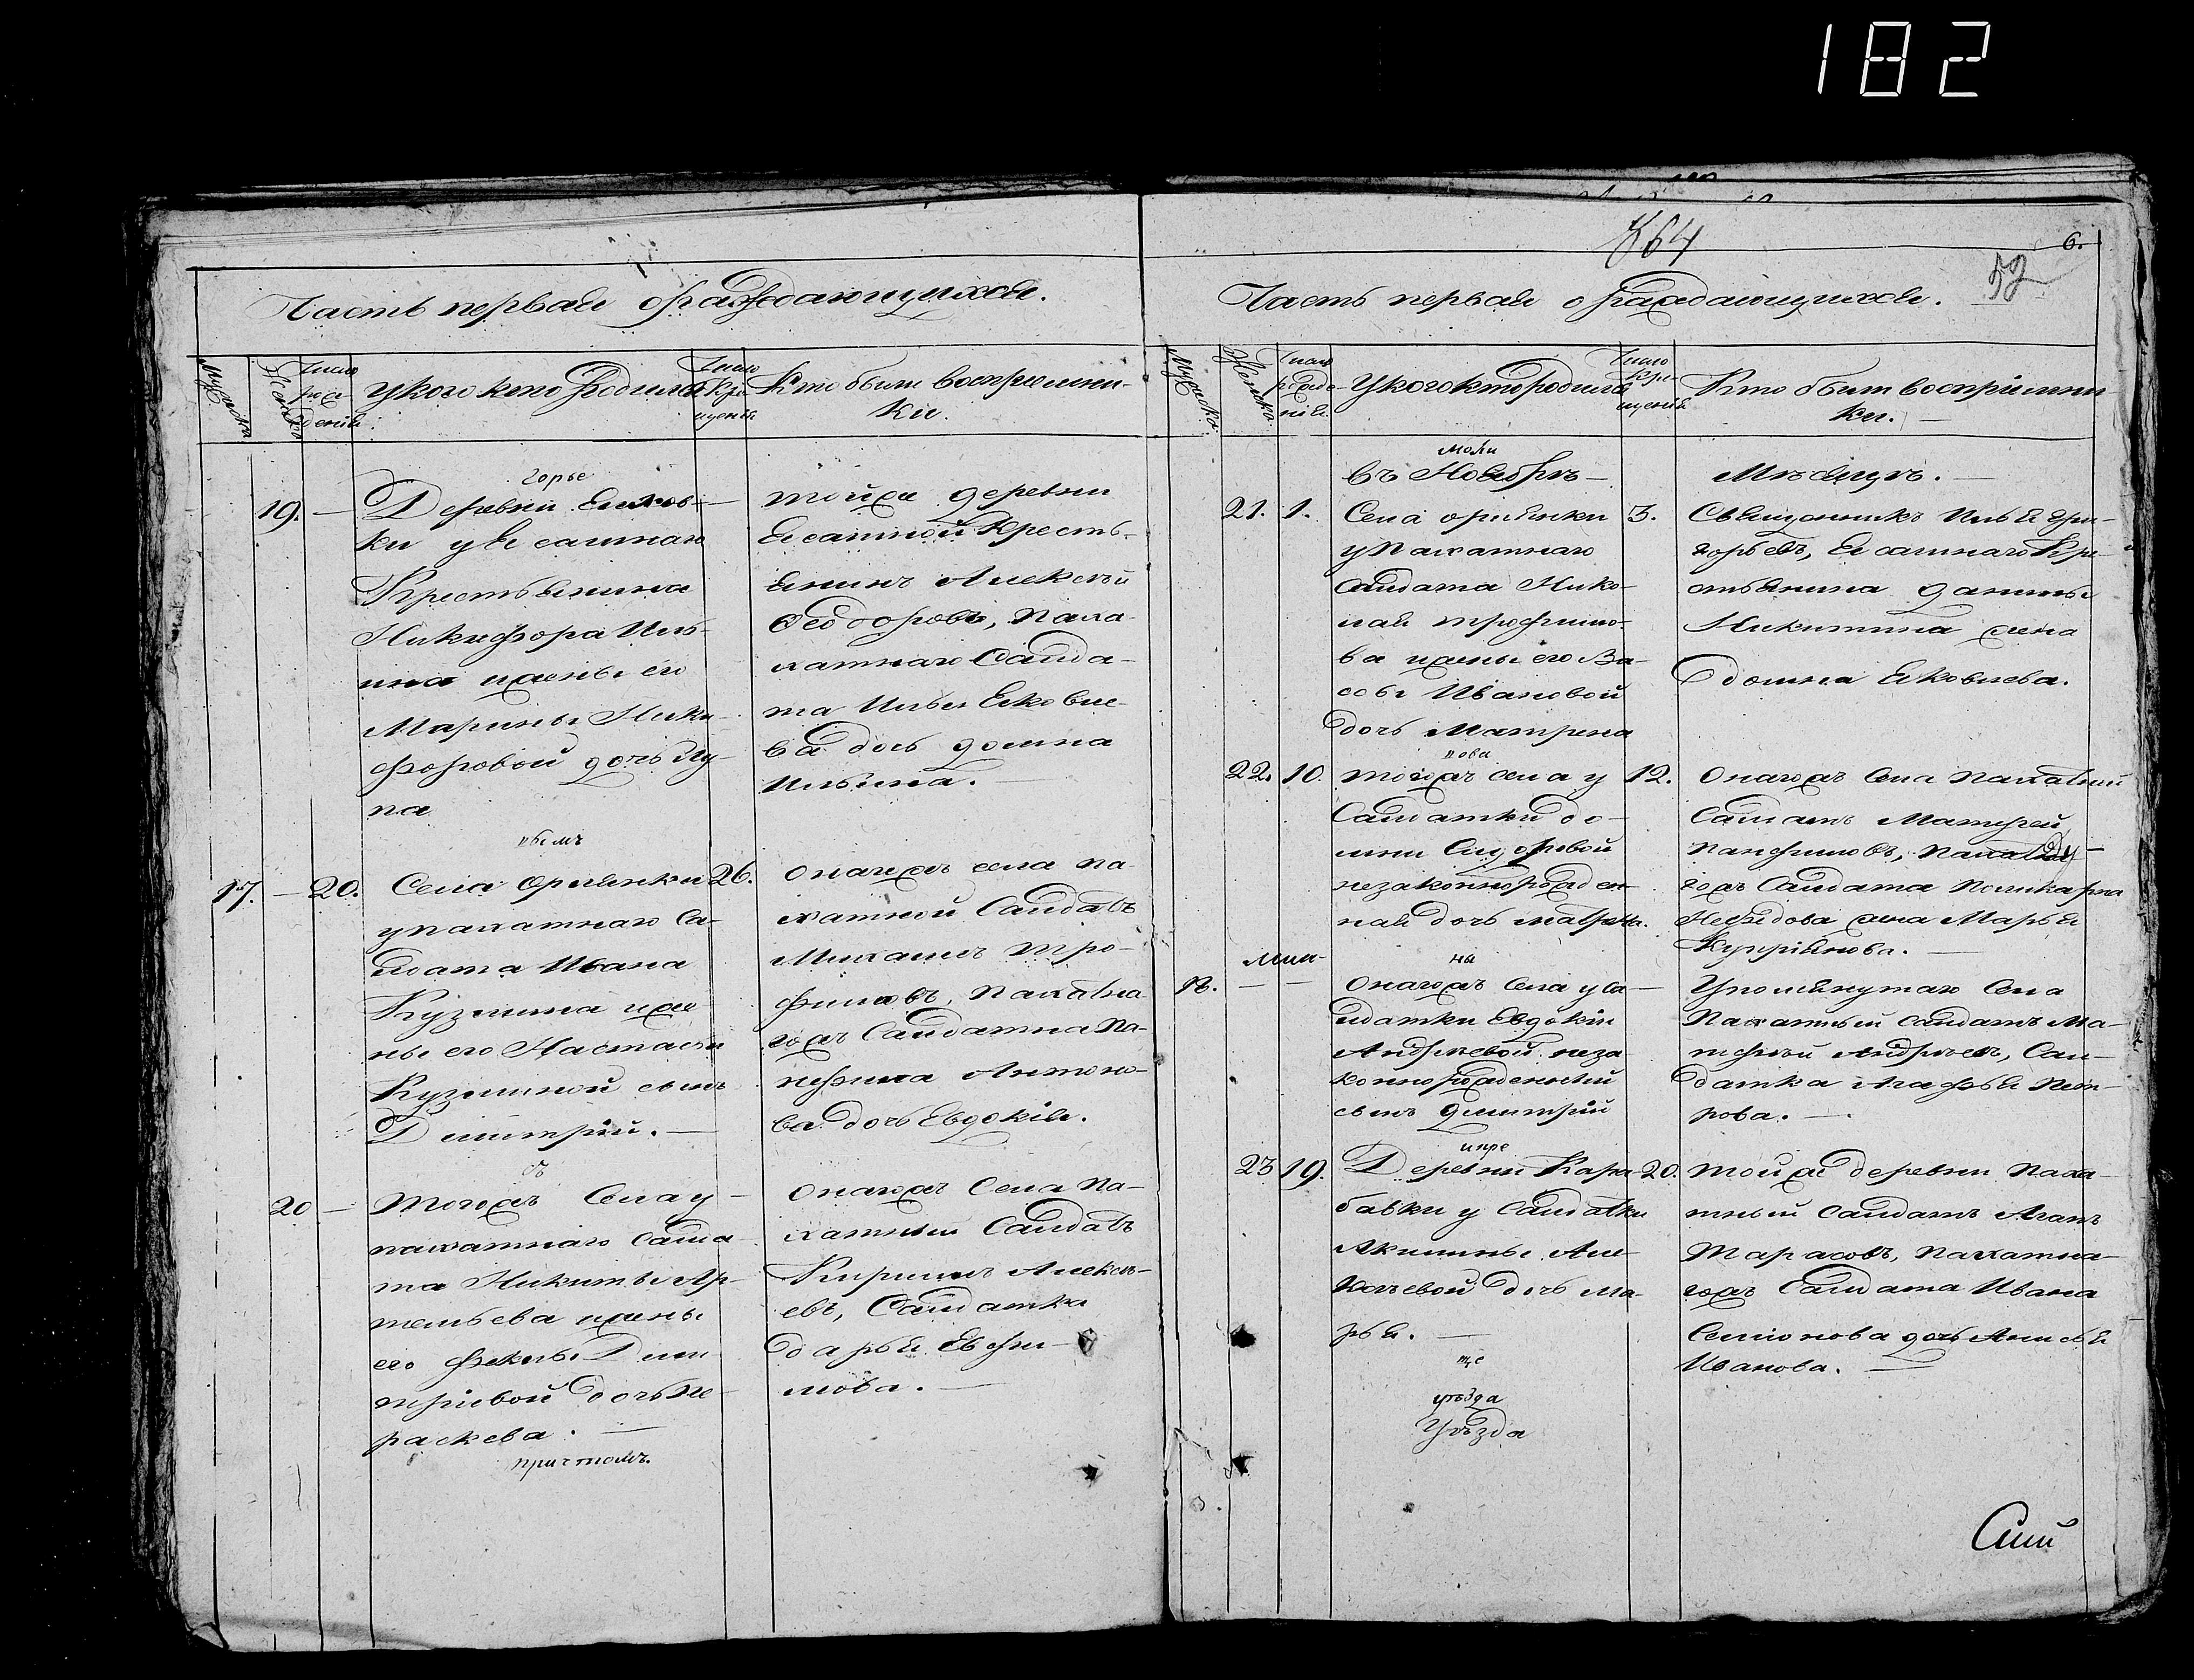 182
6.
Часть первая о раждающихся.
Мужеска
Женска
Число рождения
У кого кто родился
Число крещения
Кто были восприемни-
ки.
горье
19. — Деревни Еихов-
ки у ясашнаго
Крестьянина
Никифора Иль-
ина жены его
Марины Ники-
форовой дочь Лу-
па
—
тойже деревни
Ясашной кресть-
янинъ Алексѣй
Феодоровъ, Паха-
хатнаго Салда-
та Ильи Яковле-
ва дочь домна
Ильина. —
17. — 20. Села Орлянки 26.
у пахатнаго са-
лдата Ивана
Кузмина же
ны его Настасьи
Кузминой сынъ
Димитрій. —
Онагожъ села па-
хатной Салдатъ
Михаилъ Тро-
фимовъ, Пахатна-
гожъ Салдатна Па-
нфила Антоно-
ва дочь Евдокія.
съ
20 — Тогожъ Села у —
пахатнаго Салда-
та Никиты Ар-
темьева жены
его Феклы Дим-
тріевой дочь Пе-
раскева. —
причтомъ.
Онагожъ Села Па-
хатныи Салдатъ
Кирилъ Алексѣ-
евъ, Салдатка
дарья Евфи-
мова. —
Часть первая о раждающихся.
Мужеска
Женска
Число рожде-
нія.
У кого кто родился
Число кре-
щенія
Кто были восприемни
ки. —
моли
въ Ноябрѣ — Мѣсяцѣ. —
21. 1. Села орлянки 3.
у Пахатнаго
Салдата Нико-
лая трофимо-
ва жены его Ва-
собы Ивановой
дочь Матрена
Священникъ Илья Гри-
горьевъ, Ясашнаго Кре-
стьянина данилы
Никитина жена
домна Яковлева.
пова
22. 10. тогожъ села у 12.
Салдатки до-
мны Сидоровой
незаконнорожден-
ная дочь матрена.
Онагожъ Села пахатный
Салдатъ Матфей
Панфиловъ,
гожъ Салдата Поликарпа
Нефедова жена Марья
Купріянова. —
на
18. — — Онагожъ Села у са —
лдатки Евдокіи
Андреевой неза-
коннорожденный
сынъ димитрій
Упомянутаго Села
Пахатный салдатъ Ма-
тфѣй Андрѣевъ, Сал-
датка Агафья Пет-
рова. —
ипре
23 19. Деревни Кара- 20.
бавки у Салдатки
Акилины Але-
ксѣевой дочь Ма-
рья. —
тойже деревни Паха-
тный салдатъ Агапъ
Тарасовъ, Пахатна-
гожъ Салдата Ивана
Семіонова дочь Анисья
Иванова. —
тже
уѣзда
Уѣзда
Сии